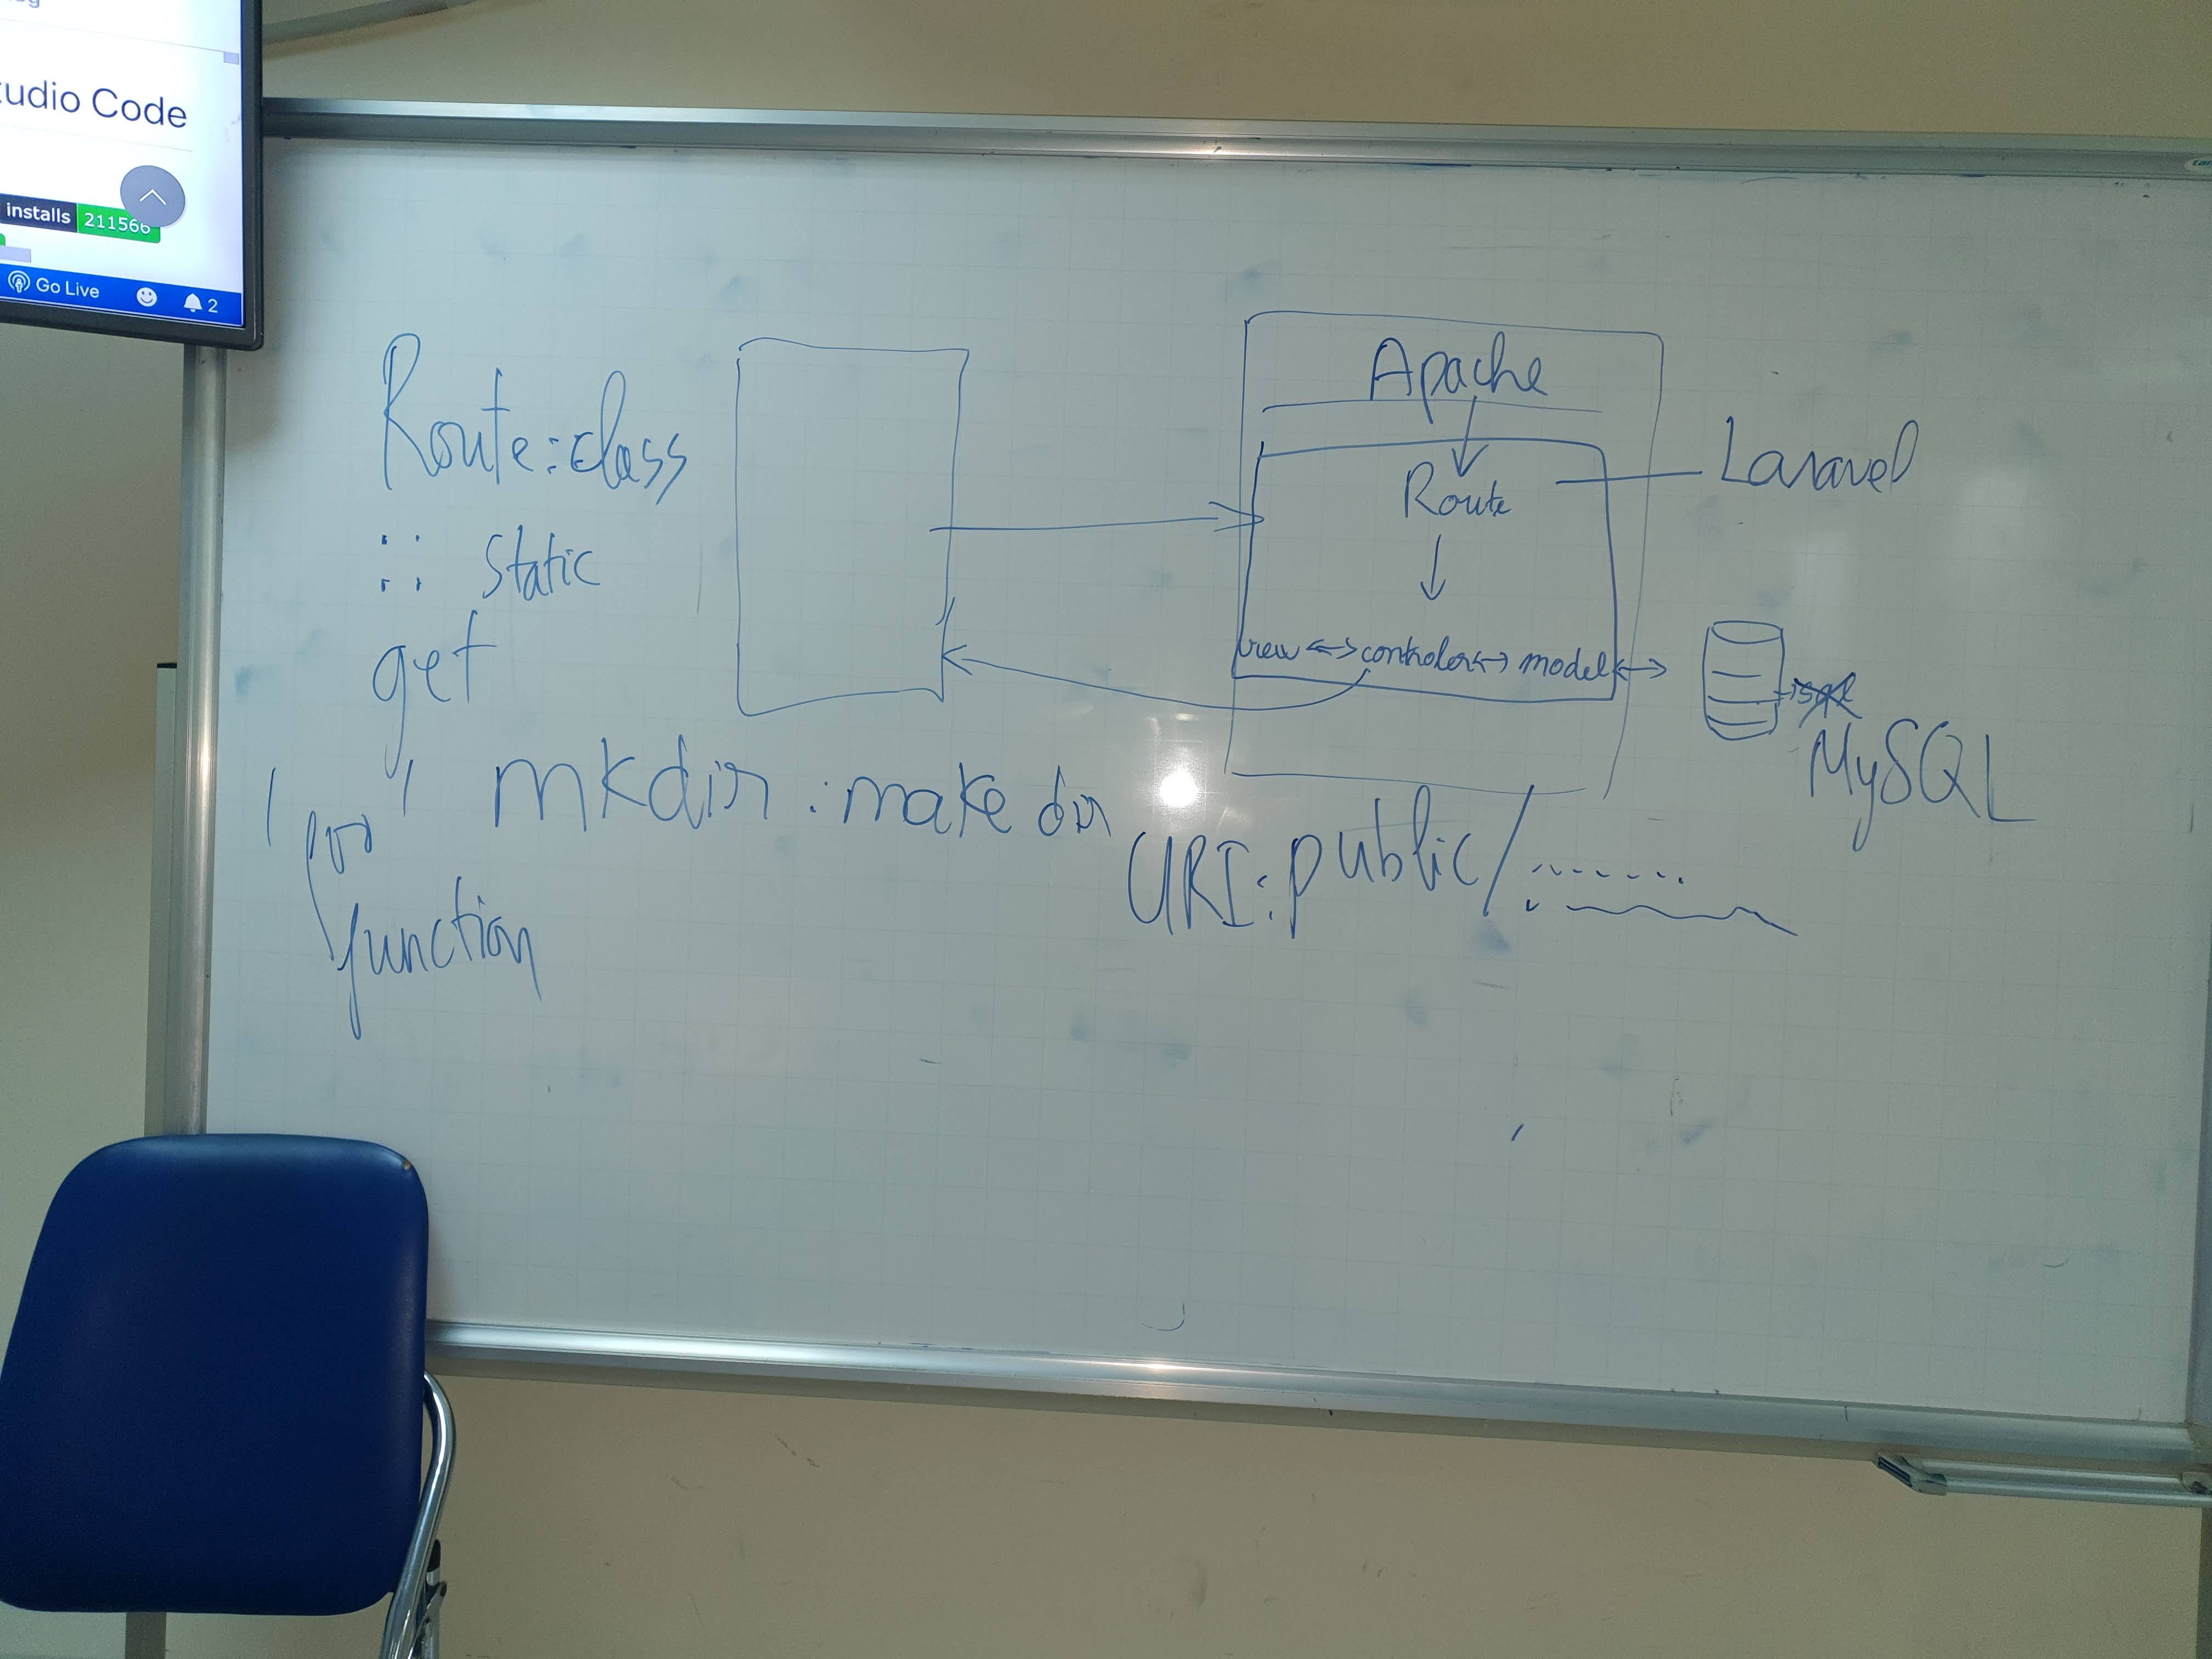 tudio Code
installs 211566
Go Live 2
Route: class
:: static
get
' '
function
mkdir : make dir
Apache
Route
Laravel
view <-> controler <-> model <->
MySQL
URI: public/.......